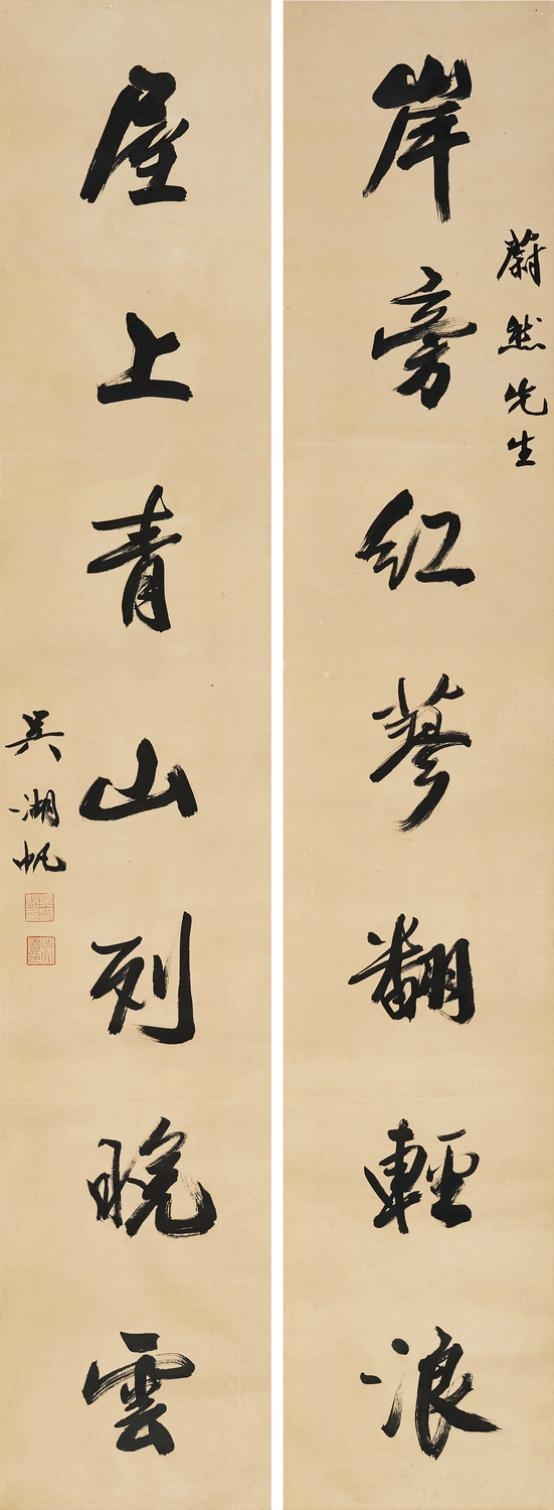 岸旁紅蓼翻輕浪
蔚然先生
屋上青山列晚雲
吳湖帆